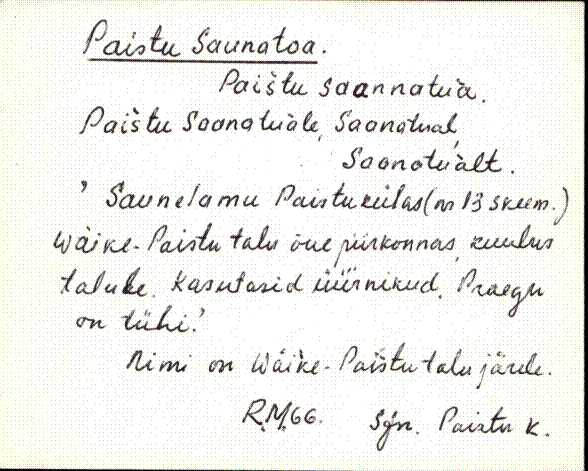 Paistu Saunatoa.
Paištu saannatua.
Paištu Saanatuale, Saanatual,
Saanatualt.
' Saunelamu Paistu külas (nr 13 skeem.)
Wäike-Paistu talu õue piirkonnas, kuulus
talule. Kasutasid üürnikud. Praegu
on tühi.'
Nimi on Wäike-Paištu talu järele.
R.M.66. Sjn. Paistu k.